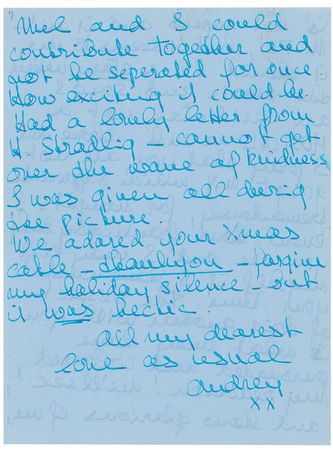 7
Mel and I could
contribute together and
not be seperated for once
How exciting it could be.
Had a lovely letter from
H. – cannot get
over the wave of kindness
I was given all during
the picture.
We adored your Xmas
cable – thankyou – forgive
my holiday silence – but
it was hectic.
all my dearest
love as usual
Audrey.
xx